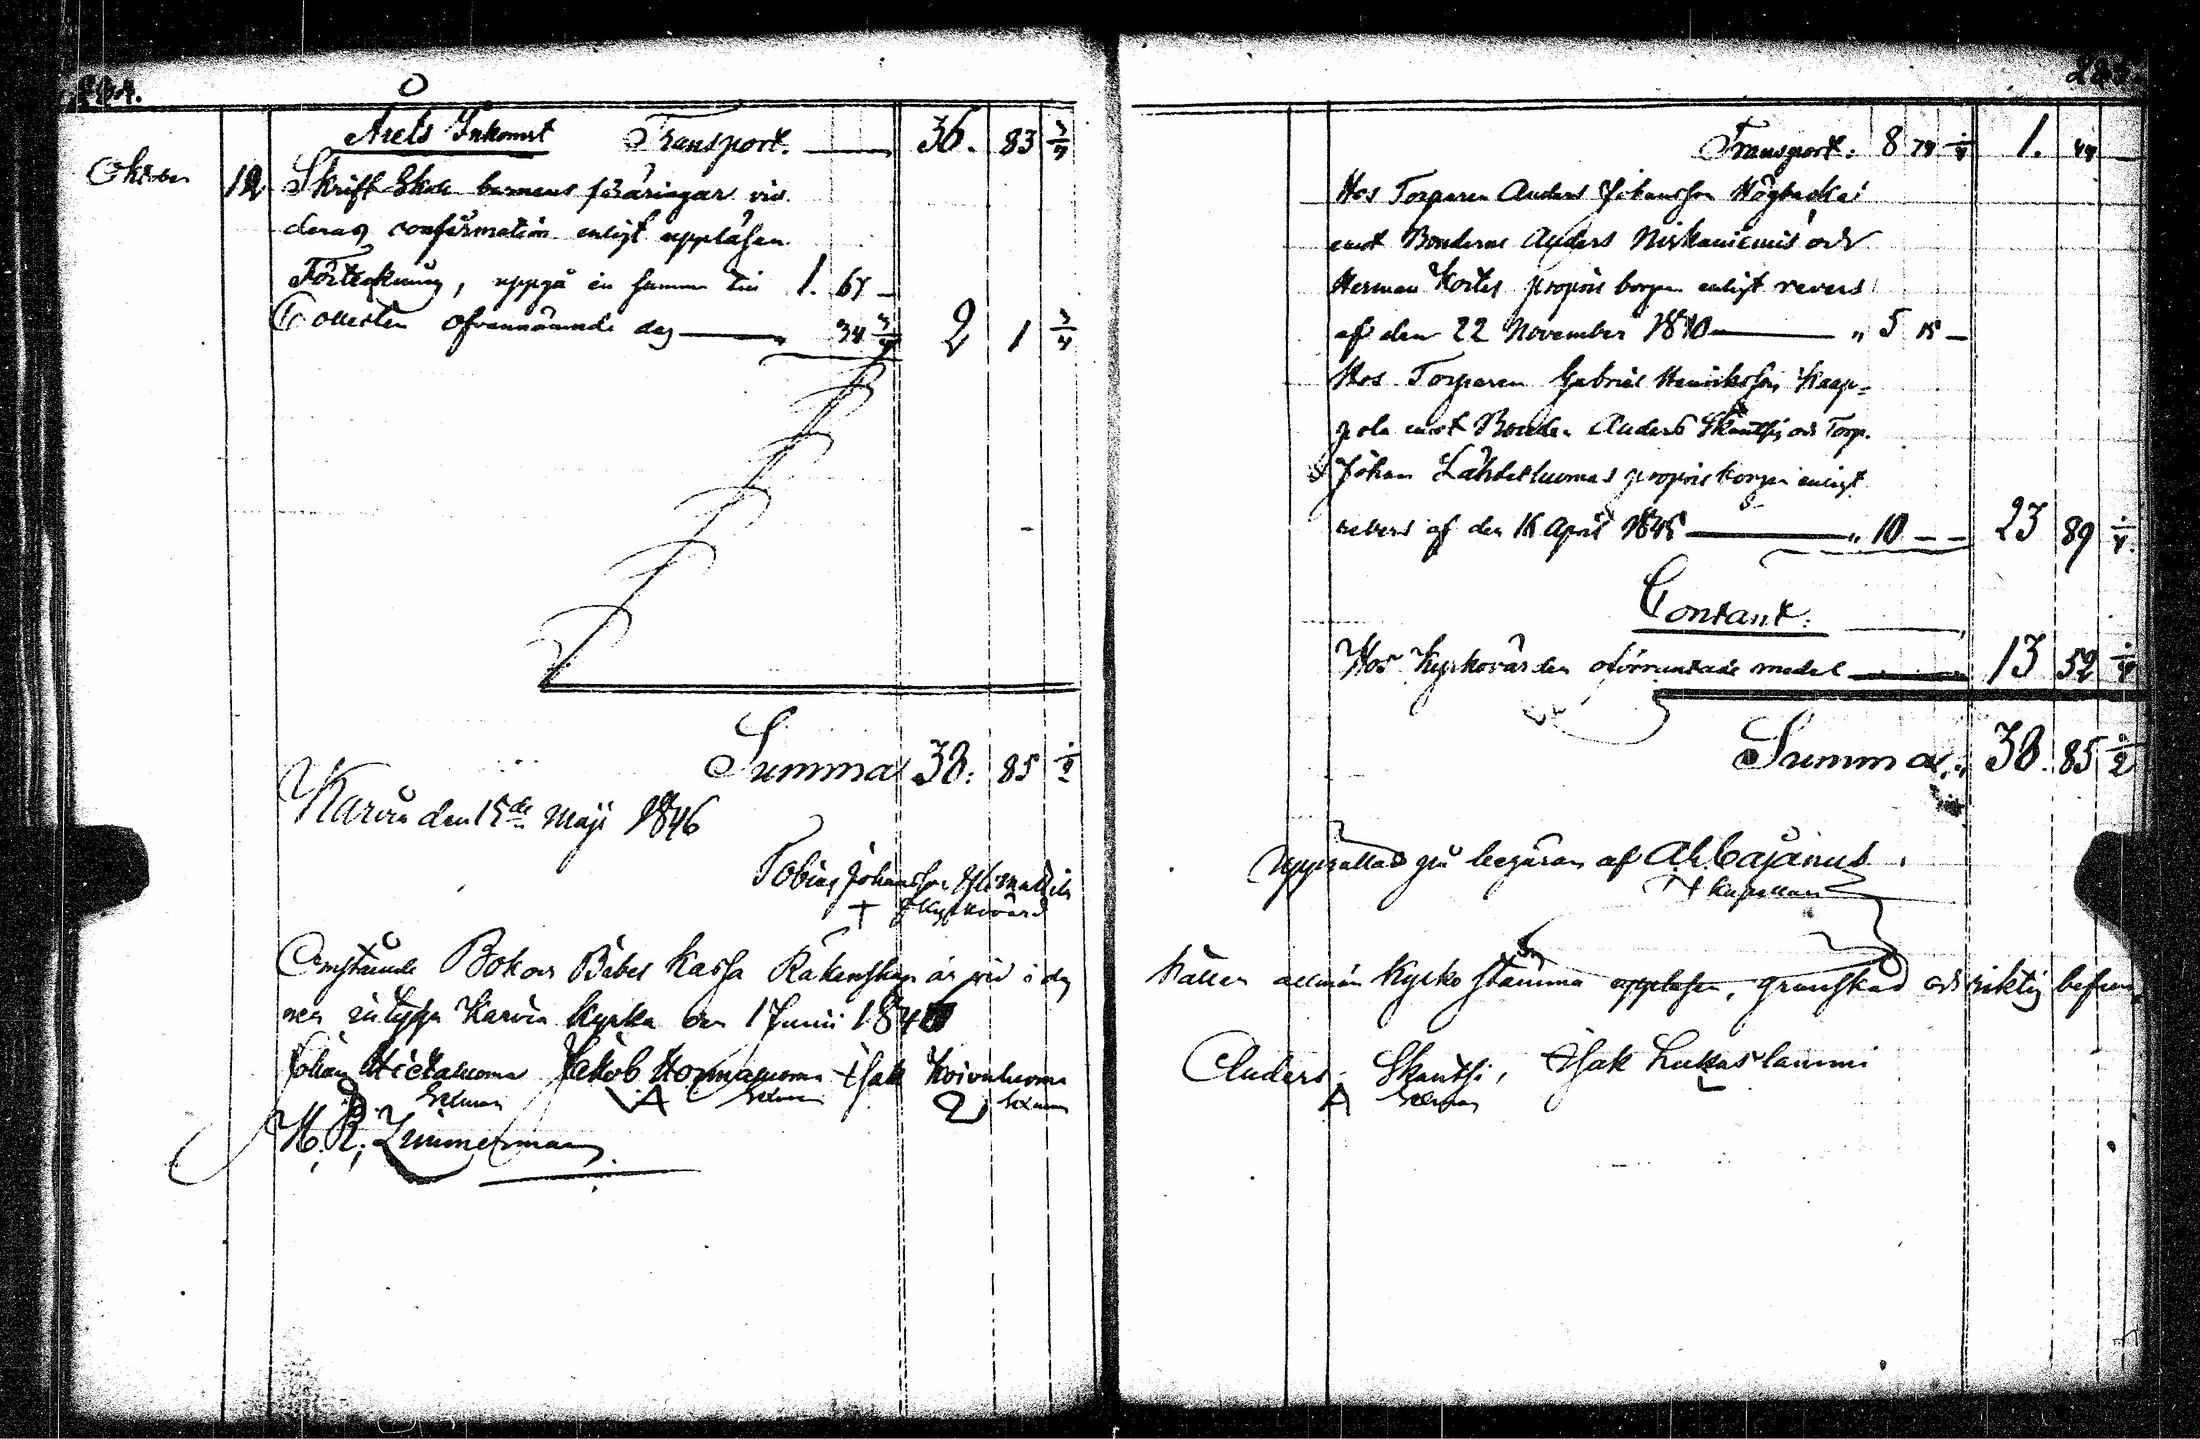 Årets Inkomst Transport. 36. 83 3/4
Oktober 12 Skrift Skole barnens föräringar vid
deras confirmation enligt uppläsen
Förteckning, uppgå en summa till 1. 67 –
Collecten ofvannämnde dag 34 3/4 2 1 3/4
Summa 38. 85 1/2
Karvia den 15de Maji 1846
Tobias Johansson
Kyrkovärd
Omstående Bok och Bibel Kassa Räkenskap är vid i dag
Karvia Kyrka den 1 Junii
Johan Hietaluoma Jakob Hormaluoma Isak Koivuluoma
Sexman Sexman Sexman
H. R. Zimmermann
Transport: 8 74 1/4 1. 44 –
Hos Torparen Anders Johansson Högbacka
emot Bönderne Anders Niskaniemis och
Herman Kortes proprie borgen enligt revers
af den 22 November 1810 " 5 15 –
Hos Torparen Gabriel Henriksson Kaap-
pola emot Bonden Anders Skantsis och Torp.
Johan Lähdeluomas proprie borgen enligt
revers af den 16 April 1845 " 10 – – 23 89 1/4
Contant:
Hos Kyrkovärden oförräntade medel 13 52 1/4
Summa 38. 85 1/2
Uppsattad på begäran af A. h. Cajanus
Kapellan
hållen allmän Kyrko stämma uppläsen, granskad och riktig
Anders Skantsi, Isak Lukaslammi
Sexman